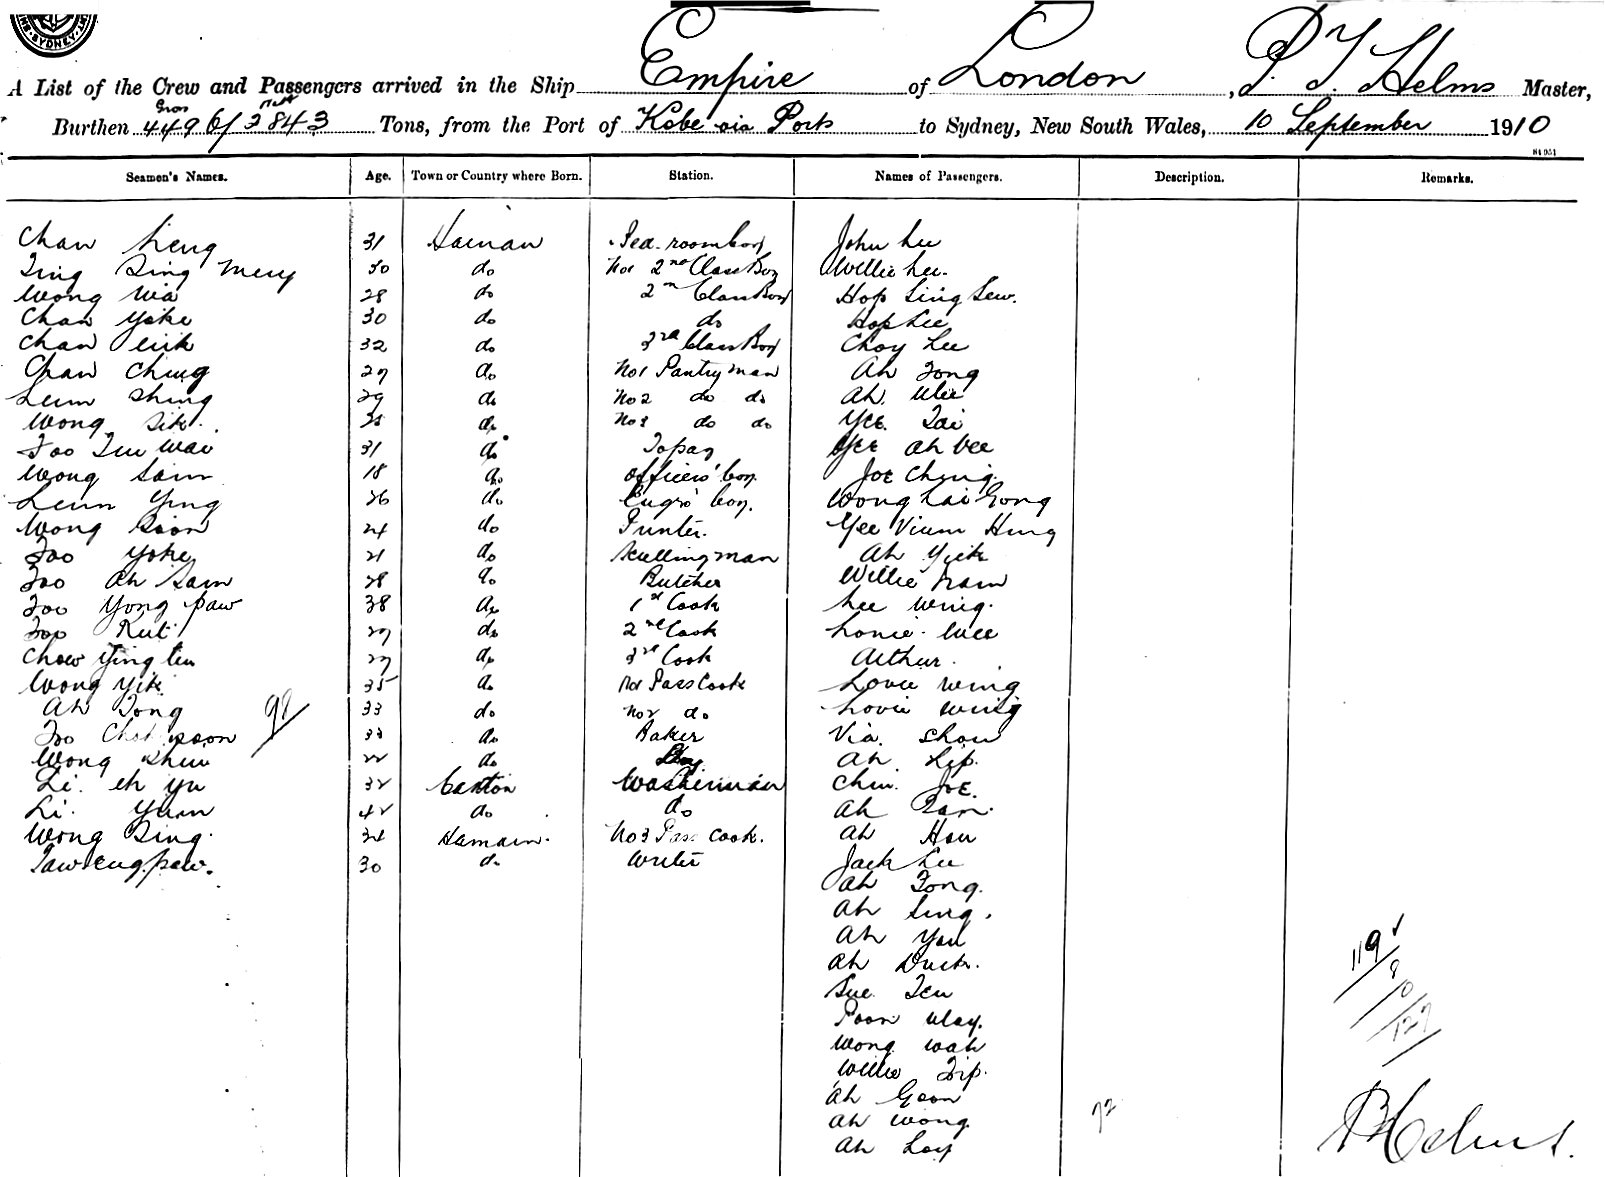 SYDNEY
A List of the Crew and Passengers arrived in the Ship Empire of London, P. T. Helms Master,
Gross Nett
Burthen 4496/2843 Tons, from the Port of Kobe via Ports to Sydney, New South Wales, 10 September 1910
Seamen's Names. Age. Town or Country where Born. Station. Names of Passengers. Description. Remarks.
Chan Heng 31 Hainan Sea-room boy John Lee
Ting Sing Mery 30 do No1 2nd Class Boy Willie Lee.
Wong Wa 28 do 2nd Class Boy Hop Sing Lew.
Chan Yoke 30 do do Hop Lee
Chan 32 do 3rd Class Boy Choy Lee
Chan Ching 27 do No1 Pantryman Ah Fong
Leun Shing 29 do No2 do do Ah Wee
Wong Sik. do No3 do do Yee Tai
Foo Wao 31 do Topaz Yee Ah Vee
Wong Sam 18 do Officers' boy. Joe Ching.
Leun Ying 26 do Engrs' boy. Wong Lai Gong
Wong Soon 24 do Yee Hing
Foo Yoke 21 do Scullingman Ah Yick
Foo Ah Sam 28 do Butcher Willie
Foo Yong Paw 38 do 1st Cook Lee Wing.
Foo Kut 27 do 2nd Cook Louie Wee
Chow Ying 27 do 3rd Cook Arthur.
Wong Yik 35 do No1 Pass Cook Louie Wing
Ah Tong 33 do No2 do Louie Wing
98
Foo poon 33 do Baker Via. Show
Wong Shiu 22 do Boy Ah Lip.
Li. Eh Yu 32 Canton Washerman Chin Joe.
Li. Yuen 42 do do Ah San.
Wong Sing. 34 Hainan. No3 Pass Cook. Ah Hou
30 do Writer Jack Lee
Ah Fong.
Ah Sing.
Ah You
Ah Duck.
Sue Ten
Poon Way.
Wong Wah
Willie Fip.
Ah Goon
Ah Wong.
Ah Loy
119
8
10
127
72
P T Helms.